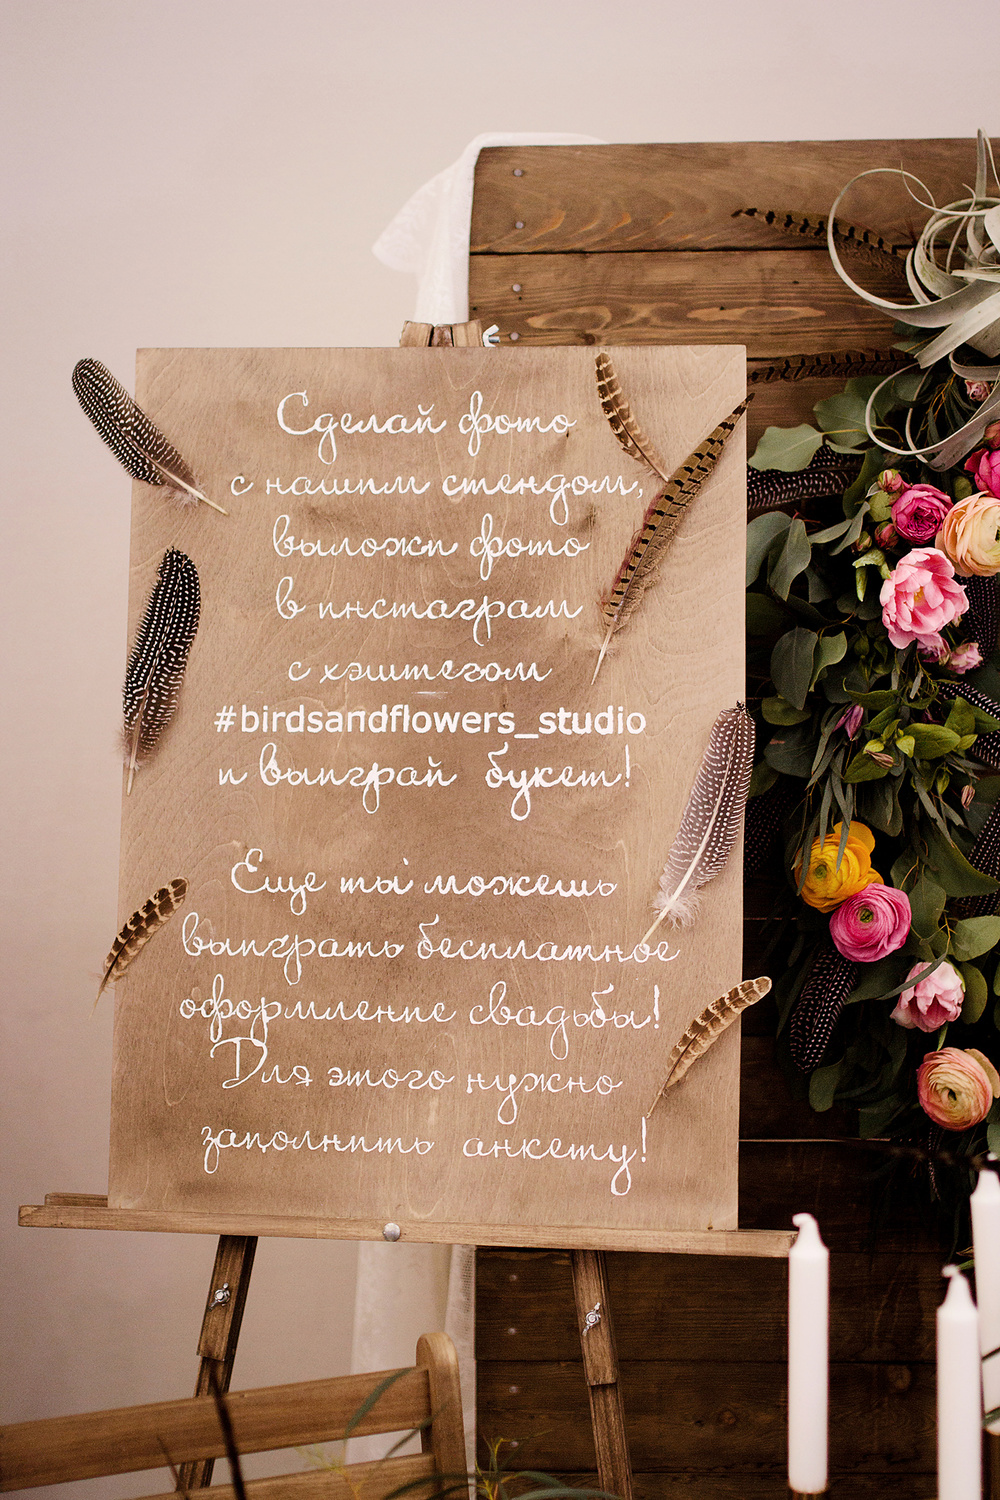 Сделай фото
с нашим стендом,
выложи фото
в инстаграм
с хэштегом
#birdsandflowers_studio
и выиграй букет!
Еще ты можешь
выиграть бесплатное
оформление свадьбы!
Для этого нужно
заполнить анкету!